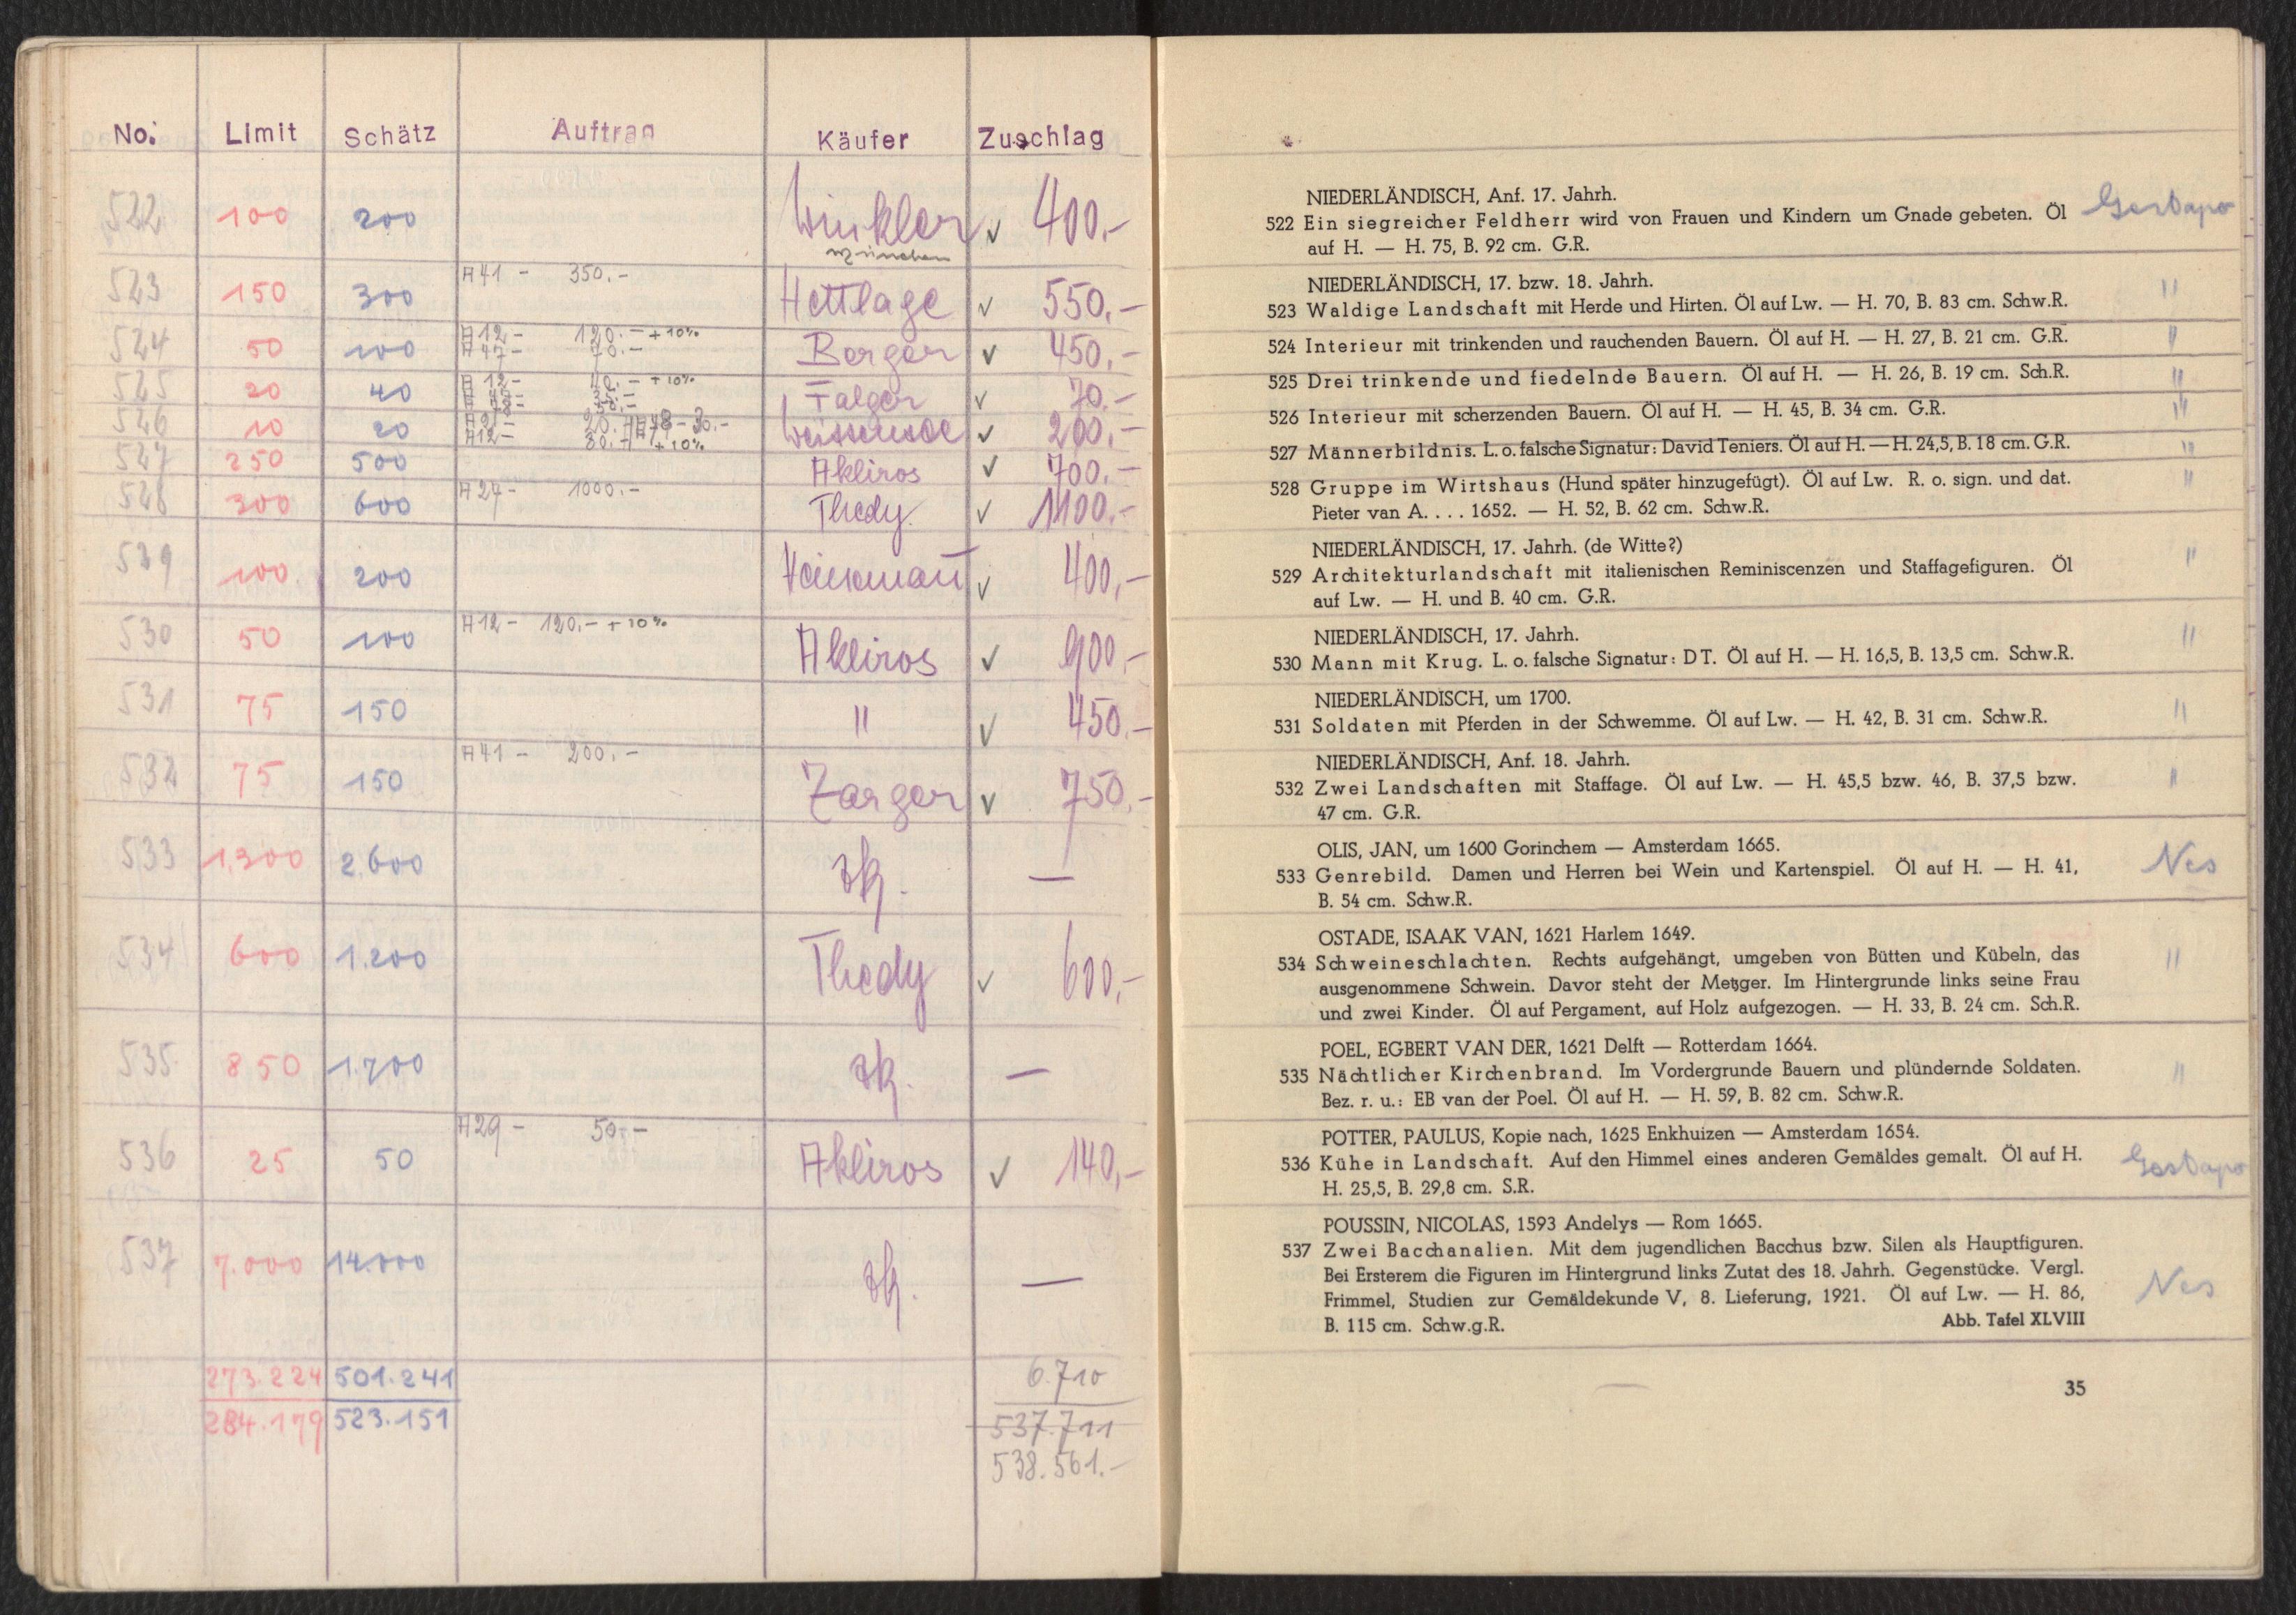 No. Limit Schätz Auftrag Käufer Zuschlag
522 100 200 Winkler ✓ 400.-
München
523 150 300 A41 - 350.- Hettlage ✓ 550.-
524 50 100 A12 - 120.- + 10% Berger ✓ 450.-
A47 - 70.-
525 20 40 A12 - 40.- + 10% Falger ✓ 70.-
526 10 20 ✓ 200.-
A12 - 80.- + 10%
527 250 500 Akliros ✓ 700.-
528 300 600 A27 - 1000.- Thedy. ✓ 1100.-
529 100 200 ✓ 400.-
530 50 100 A12 - 120.- + 10% Akliros ✓ 900.-
531 75 150 " ✓ 450.-
532 75 150 A41 - 200.- Zarger ✓ 750.-
533 1.300 2.600 zk. —
534 600 1.200 Thedy ✓ 600.-
535 850 1.700 zk. —
536 25 50 A29 - 50.- Akliros ✓ 140.-
537 7.000 14.000 zk. —
273.224 501.241 6.710
284.179 523.151 537.711
538.561.-
NIEDERLÄNDISCH, Anf. 17. Jahrh.
522 Ein siegreicher Feldherr wird von Frauen und Kindern um Gnade gebeten. Öl Gestapo
auf H. — H. 75, B. 92 cm. G.R.
NIEDERLÄNDISCH, 17. bzw. 18. Jahrh.
523 Waldige Landschaft mit Herde und Hirten. Öl auf Lw. — H. 70, B. 83 cm. Schw.R. "
524 Interieur mit trinkenden und rauchenden Bauern. Öl auf H. — H. 27, B. 21 cm. G.R. "
525 Drei trinkende und fiedelnde Bauern. Öl auf H. — H. 26, B. 19 cm. Sch.R. "
526 Interieur mit scherzenden Bauern. Öl auf H. — H. 45, B. 34 cm. G.R. "
527 Männerbildnis. L. o. falsche Signatur: David Teniers. Öl auf H. — H. 24,5, B. 18 cm. G.R. "
528 Gruppe im Wirtshaus (Hund später hinzugefügt). Öl auf Lw. R. o. sign. und dat. "
Pieter van A. . . . 1652. — H. 52, B. 62 cm. Schw.R.
NIEDERLÄNDISCH, 17. Jahrh. (de Witte?)
529 Architekturlandschaft mit italienischen Reminiscenzen und Staffagefiguren. Öl "
auf Lw. — H. und B. 40 cm. G.R.
NIEDERLÄNDISCH, 17. Jahrh. "
530 Mann mit Krug. L. o. falsche Signatur: DT. Öl auf H. — H. 16,5, B. 13,5 cm. Schw.R.
NIEDERLÄNDISCH, um 1700.
531 Soldaten mit Pferden in der Schwemme. Öl auf Lw. — H. 42, B. 31 cm. Schw.R. "
NIEDERLÄNDISCH, Anf. 18. Jahrh.
532 Zwei Landschaften mit Staffage. Öl auf Lw. — H. 45,5 bzw. 46, B. 37,5 bzw. "
47 cm. G.R.
OLIS, JAN, um 1600 Gorinchem — Amsterdam 1665.
533 Genrebild. Damen und Herren bei Wein und Kartenspiel. Öl auf H. — H. 41, Nes
B. 54 cm. Schw.R.
OSTADE, ISAAK VAN, 1621 Harlem 1649.
534 Schweineschlachten. Rechts aufgehängt, umgeben von Bütten und Kübeln, das "
ausgenommene Schwein. Davor steht der Metzger. Im Hintergrunde links seine Frau
und zwei Kinder. Öl auf Pergament, auf Holz aufgezogen. — H. 33, B. 24 cm. Sch.R.
POEL, EGBERT VAN DER, 1621 Delft — Rotterdam 1664.
535 Nächtlicher Kirchenbrand. Im Vordergrunde Bauern und plündernde Soldaten. "
Bez. r. u.: EB van der Poel. Öl auf H. — H. 59, B. 82 cm. Schw.R.
POTTER, PAULUS, Kopie nach, 1625 Enkhuizen — Amsterdam 1654.
536 Kühe in Landschaft. Auf den Himmel eines anderen Gemäldes gemalt. Öl auf H. Gestapo
H. 25,5, B. 29,8 cm. S.R.
POUSSIN, NICOLAS, 1593 Andelys — Rom 1665.
537 Zwei Bacchanalien. Mit dem jugendlichen Bacchus bzw. Silen als Hauptfiguren.
Bei Ersterem die Figuren im Hintergrund links Zutat des 18. Jahrh. Gegenstücke. Vergl.
Frimmel, Studien zur Gemäldekunde V, 8. Lieferung, 1921. Öl auf Lw. — H. 86, Nes
B. 115 cm. Schw.g.R. Abb. Tafel XLVIII
35